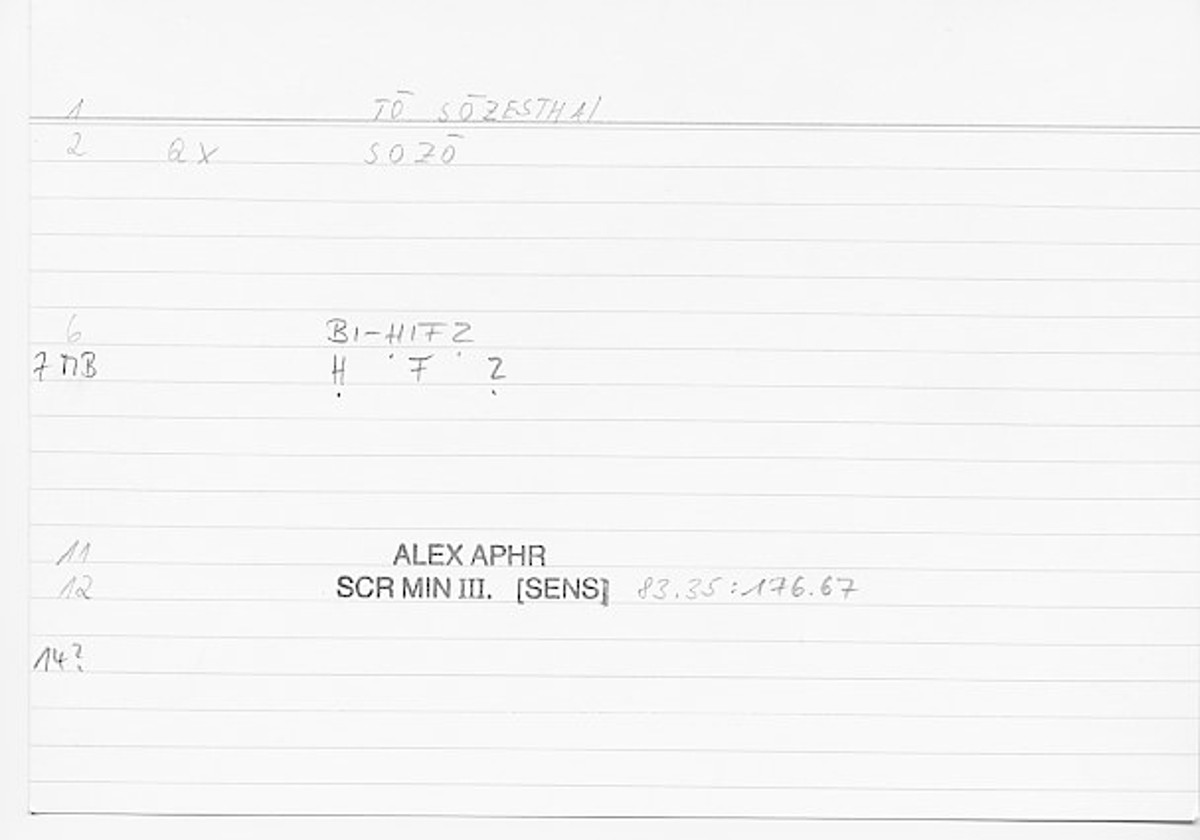 1 TŌ SŌZESTHAI
2 QX SOZŌ
6 BI-ḤIFẒ
7 MB Ḥ F Ẓ
11 ALEX APHR
12 SCR MIN III. [SENS] 83.35:176.67
14?